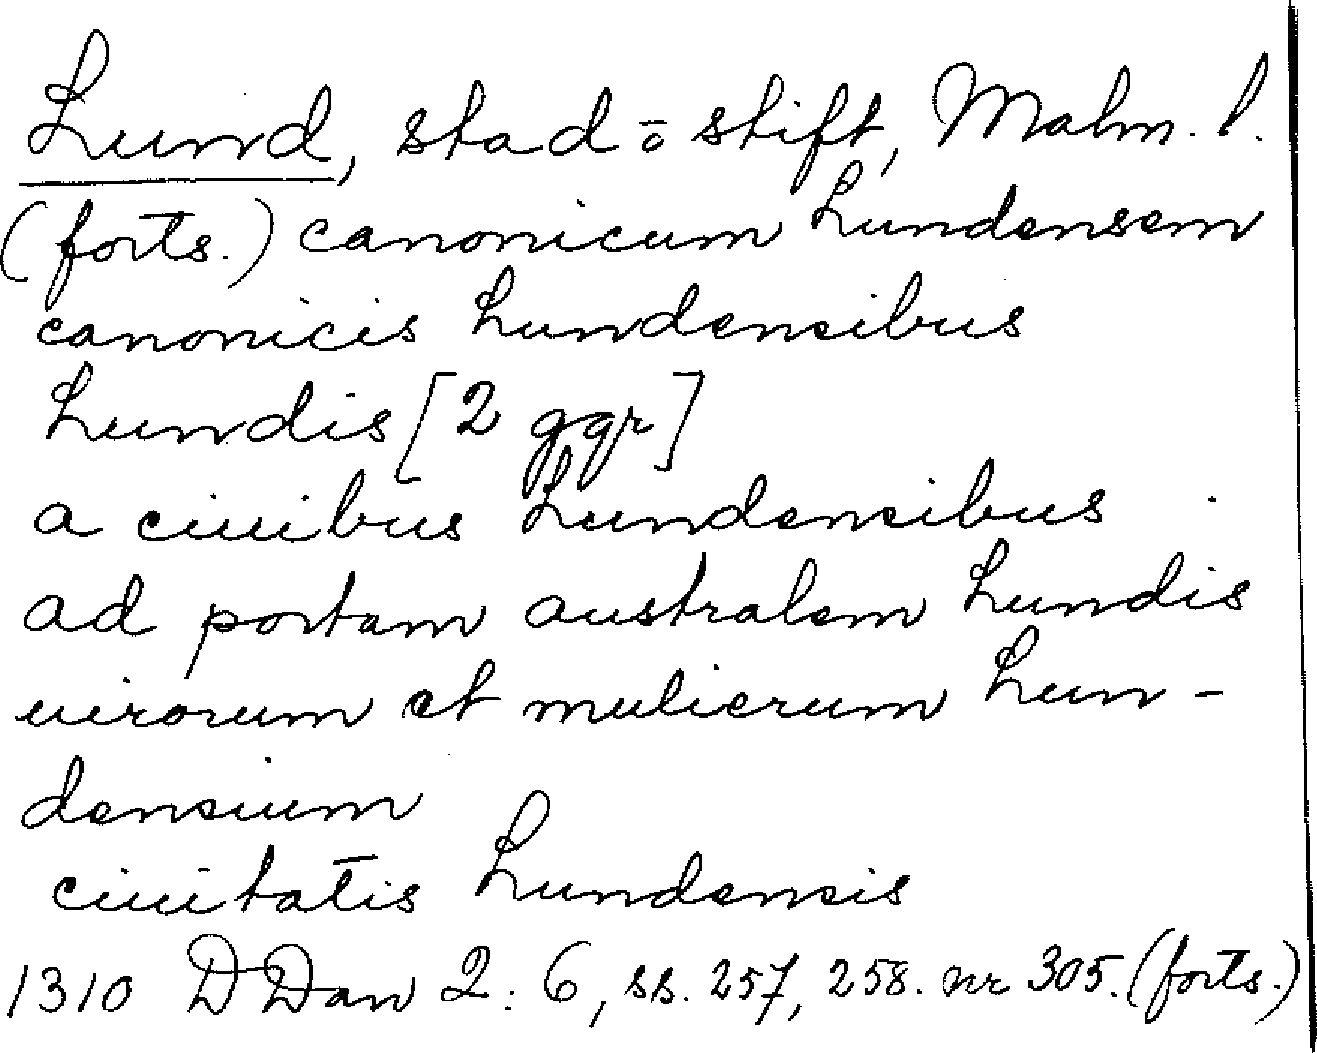 Lund, stad o stift, Malm. l.
(forts.) canonicum Lundensem
canonicis Lundensibus
Lundis [2 ggr]
a ciuibus Lundensibus
ad portam australem Lundis
uirorum et mulierum Lun-
densium
ciuitatis Lundensis
1310 DDan 2: 6, ss. 257, 258. nr 305. (forts.)